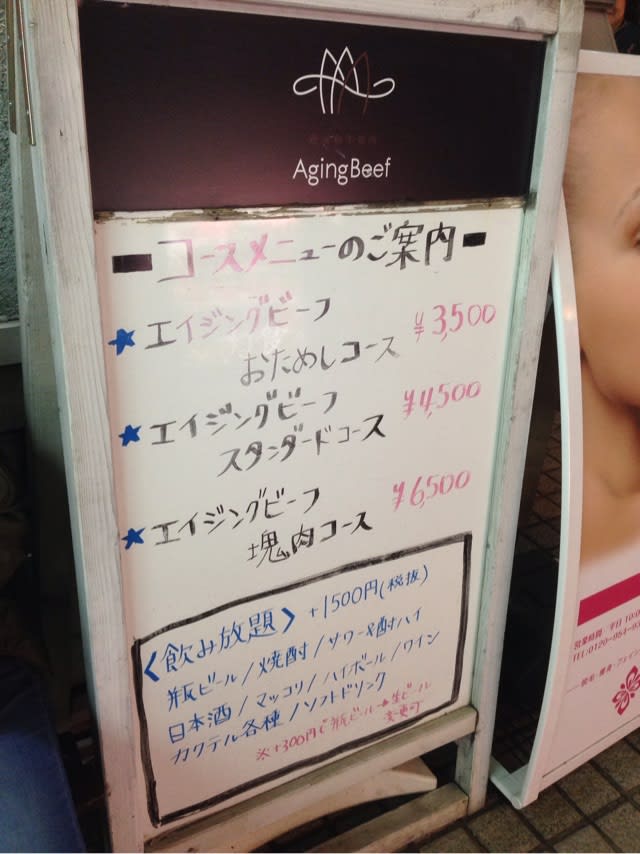 AgingBeef
コースメニューのご案内
★エイジングビーフ
おためしコース ¥3,500
★エイジングビーフ
スタンダードコース ¥4,500
★エイジングビーフ
塊肉コース ¥6,500
〈飲み放題〉+1500円(税抜)
瓶ビール/焼酎/サワー&酎ハイ
日本酒/マッコリ/ハイボール/ワイン
カクテル各種/ソフトドリンク
※+300円で瓶ビール→生ビール
変更可
営業時間/平日 10:0